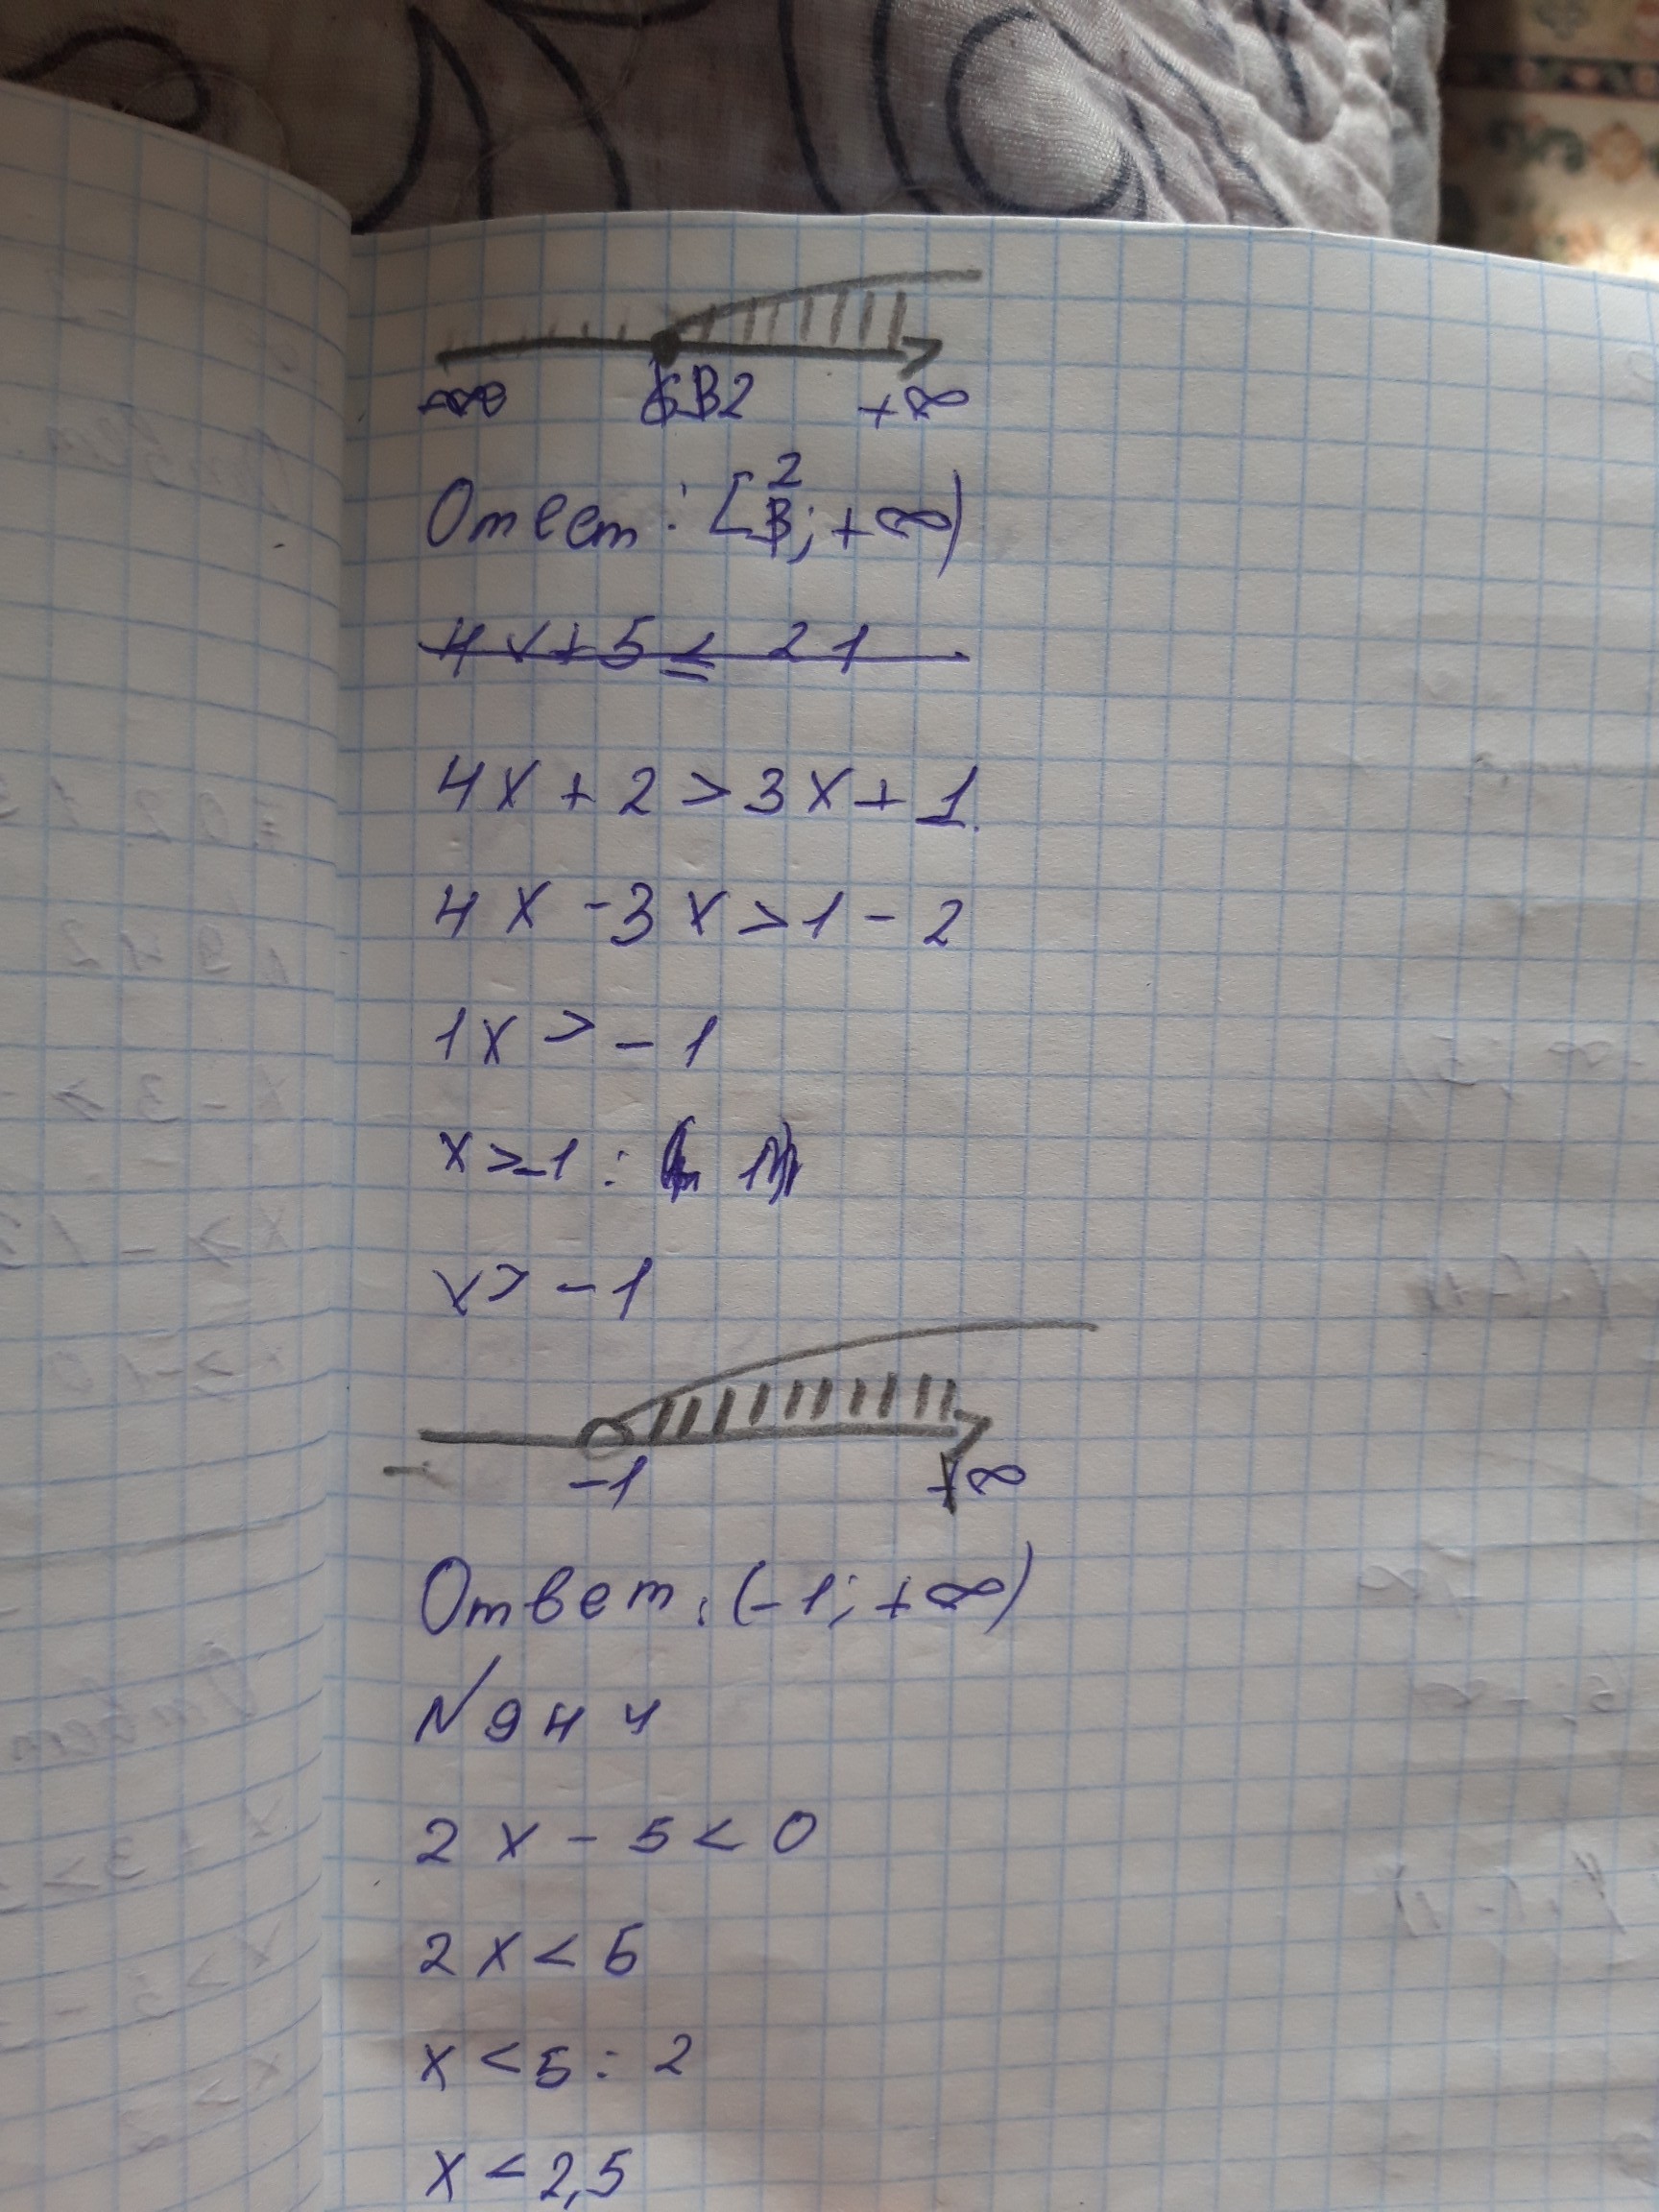 2 +∞
Ответ: [2; +∞)
4x+5≤ 21
4x + 2 > 3x + 1.
4x - 3x > 1 - 2
1x > - 1
x > -1 :
x > - 1
-1 +∞
Ответ: (-1; +∞)
№ 944
2x - 5 < 0
2x < 5
x < 5 : 2
x < 2,5